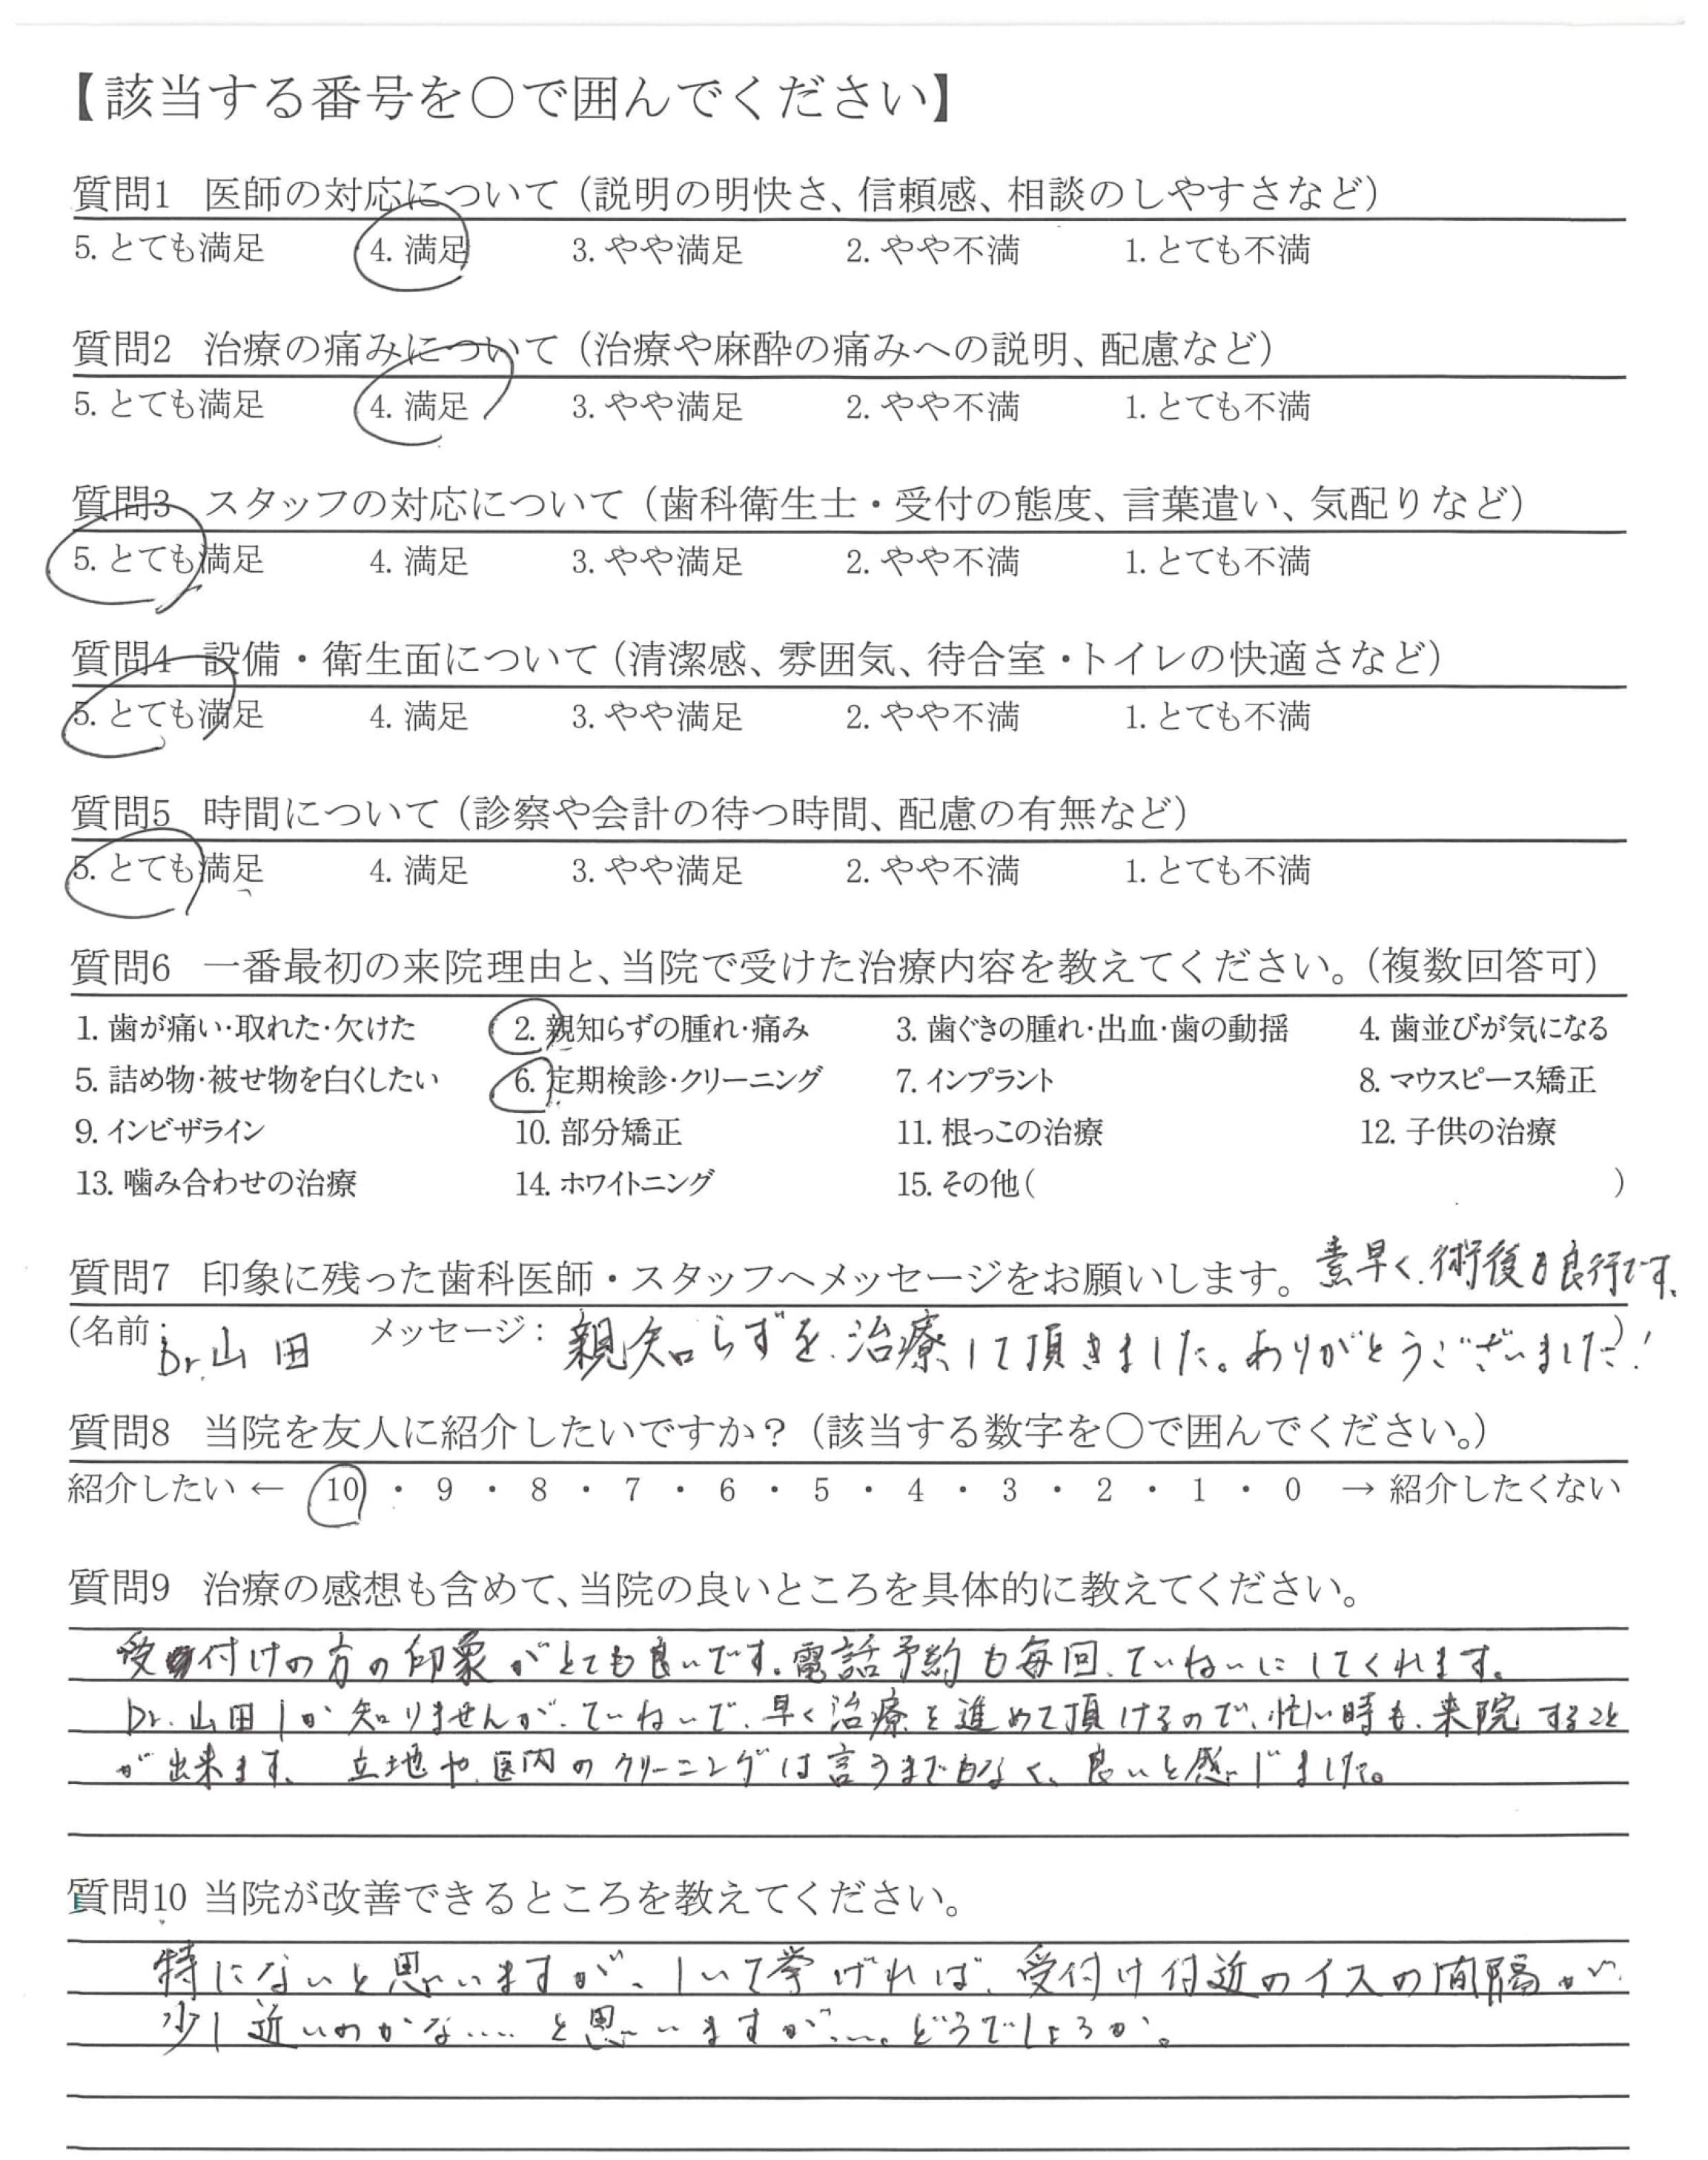 【該当する番号を○で囲んでください】
質問1 医師の対応について（説明の明快さ、信頼感、相談のしやすさなど）
5. とても満足 4. 満足 3. やや満足 2. やや不満 1. とても不満
質問2 治療の痛みについて（治療や麻酔の痛みへの説明、配慮など）
5. とても満足 4. 満足 3. やや満足 2. やや不満 1. とても不満
質問3 スタッフの対応について（歯科衛生士・受付の態度、言葉遣い、気配りなど）
5. とても満足 4. 満足 3. やや満足 2. やや不満 1. とても不満
質問4 設備・衛生面について（清潔感、雰囲気、待合室・トイレの快適さなど）
5. とても満足 4. 満足 3. やや満足 2. やや不満 1. とても不満
質問5 時間について（診察や会計の待つ時間、配慮の有無など）
5. とても満足 4. 満足 3. やや満足 2. やや不満 1. とても不満
質問6 一番最初の来院理由と、当院で受けた治療内容を教えてください。（複数回答可）
1. 歯が痛い・取れた・欠けた 2. 親知らずの腫れ・痛み 3. 歯ぐきの腫れ・出血・歯の動揺 4. 歯並びが気になる
5. 詰め物・被せ物を白くしたい 6. 定期検診・クリーニング 7. インプラント 8. マウスピース矯正
9. インビザライン 10. 部分矯正 11. 根っこの治療 12. 子供の治療
13. 噛み合わせの治療 14. ホワイトニング 15. その他（ ）
質問7 印象に残った歯科医師・スタッフへメッセージをお願いします。 素早く、術後も良行です。
（名前：Dr.山田 メッセージ：親知らずを、治療して頂きました。ありがとうございました！）
質問8 当院を友人に紹介したいですか？（該当する数字を○で囲んでください。）
紹介したい ← 10 ・ 9 ・ 8 ・ 7 ・ 6 ・ 5 ・ 4 ・ 3 ・ 2 ・ 1 ・ 0 → 紹介したくない
質問9 治療の感想も含めて、当院の良いところを具体的に教えてください。
受付けの方の印象がとても良いです。電話予約も毎回、ていねいにしてくれます。
Dr.山田しか知りませんが、ていねいで、早く治療を進めて頂けるので、忙しい時も、来院すること
が出来ます。 立地や、医内のクリーニングは言うまでもなく、良いと感じました。
質問10 当院が改善できるところを教えてください。
特にないと思いますが、しいて挙げれば、受付け付近のイスの間隔が、
少し近いのかな…. と思いますが…。どうでしょうか。